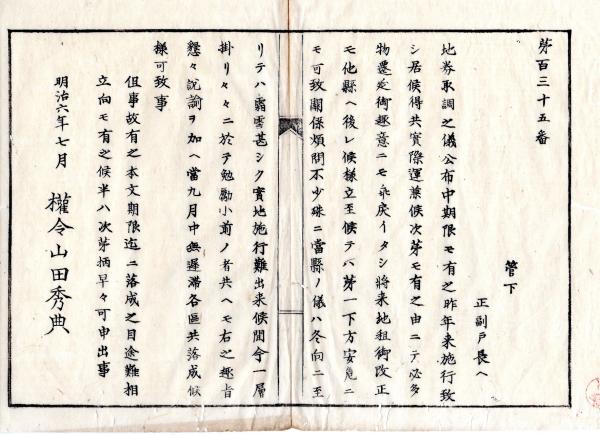 第百三十五番
管下
正副戸長ヘ
地券取調之儀公布中期限モ有之昨年来施行致
シ居候得共實際運兼候次第モ有之由ニテ必多
物遷延御趣意ニモ乖戻イタシ将来地租御改正
モ他縣ヘ後レ候様立至候テハ第一下方安危ニ
モ可致關係煩悶不少殊ニ當縣ノ儀ハ冬向ニ至
リテハ霜雪甚シク實地施行難出来候間今一層
掛リ々々ニ於テ勉勵小前ノ者共ヘモ右之趣旨
懇々説諭ヲ加ヘ當九月中無遅滞各區共落成候
様可致事
但事故有之本文期限迄ニ落成之目途難相
立向モ有之候半ハ次第柄早々可申出事
明治六年七月
權令山田秀典